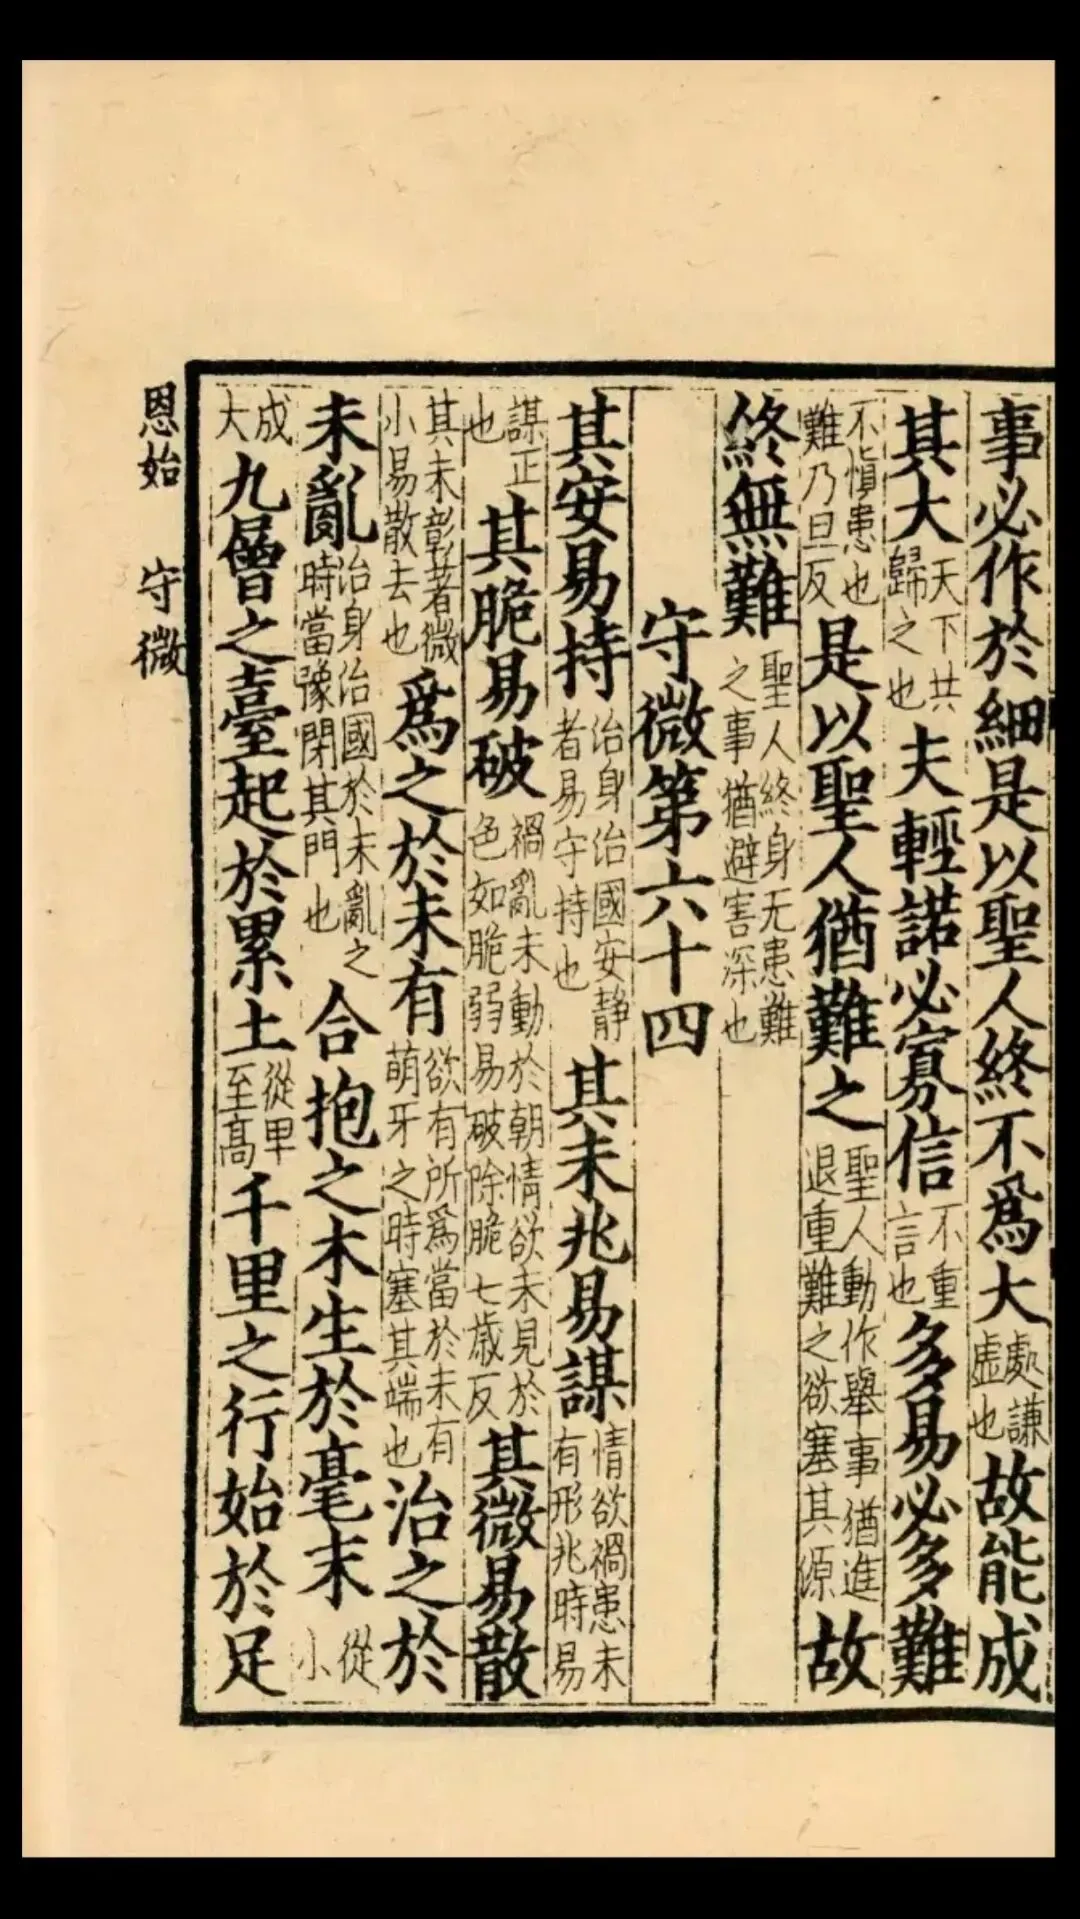 事必作於細是以聖人終不爲大處謙虛也故能成
其大天下共歸之也夫輕諾必寡信不重言也多易必多難
不慎患也難乃旦反是以聖人猶難之聖人動作舉事猶進退重難之欲塞其源故
終無難聖人終身无患難之事猶避害深也
守微第六十四
其安易持治身治國安靜者易守持也其未兆易謀情欲禍患未有形兆時易
謀正也其脆易破禍亂未動於朝情欲未見於色如脆弱易破除脆七歲反其微易散
其未彰著微小易散去也爲之於未有欲有所爲當於未有萌牙之時塞其端也治之於
未亂治身治國於未亂之時當豫閉其門也合抱之木生於毫末從小
成大九層之臺起於累土從卑至髙千里之行始於足
恩始 守微